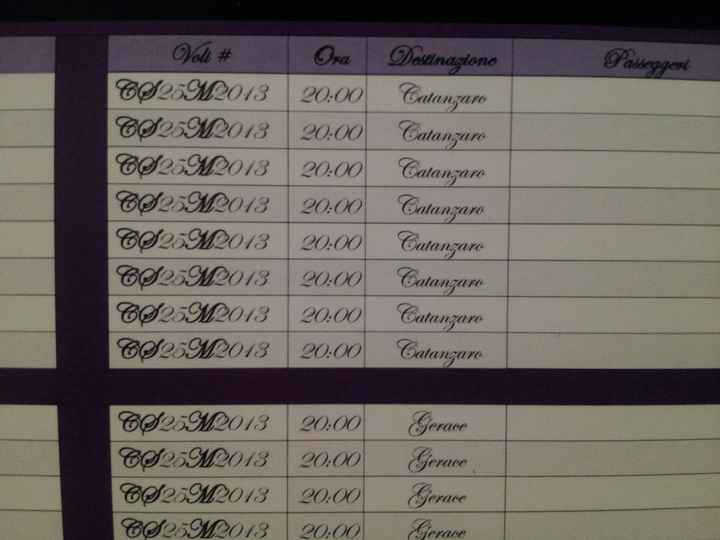 Voli # Ora Destinazione Passeggeri
CS25M2013 20:00 Catanzaro
CS25M2013 20:00 Catanzaro
CS25M2013 20:00 Catanzaro
CS25M2013 20:00 Catanzaro
CS25M2013 20:00 Catanzaro
CS25M2013 20:00 Catanzaro
CS25M2013 20:00 Catanzaro
CS25M2013 20:00 Catanzaro
CS25M2013 20:00 Gerace
CS25M2013 20:00 Gerace
CS25M2013 20:00 Gerace
CS25M2013 20:00 Gerace